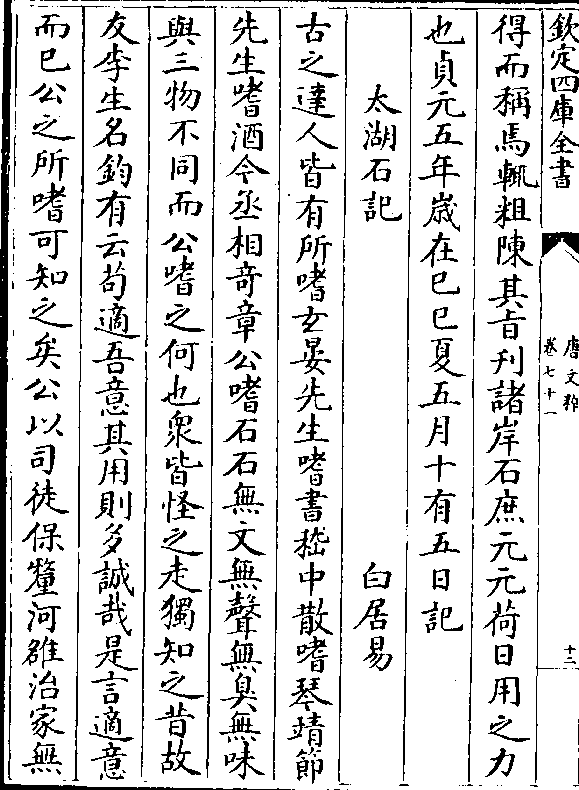 欽定四庫全書
唐文粹
卷七十一
十二
得而稱焉輒粗陳其旨刋諸岸石庶元元荷日用之力
也貞元五年歲在己巳夏五月十有五日記
太湖石記
白居易
古之達人皆有所嗜玄晏先生嗜書嵇中散嗜琴靖節
先生嗜酒今丞相竒章公嗜石石無文無聲無臭無味
與三物不同而公嗜之何也衆皆怪之走獨知之昔故
友李生名鈞有云茍適吾意其用則多誠哉是言適意
而已公之所嗜可知之矣公以司徒保釐河雒治家無